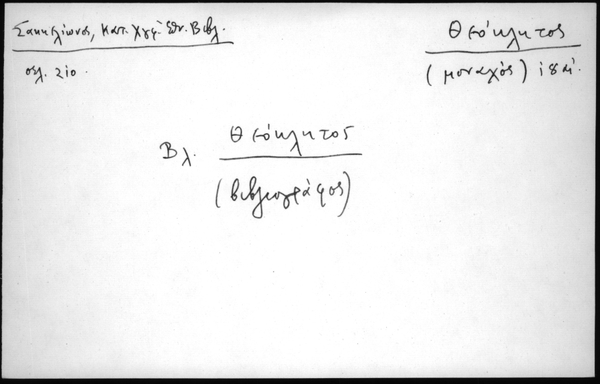 Σακκελίωνος, Κατ. Χγφ. Εθν. Βιβλ.
σελ. 210.
Θεόκλητος
(μοναχός) ιϛαι.
Βλ. Θεόκλητος
(βιβλιογράφος)